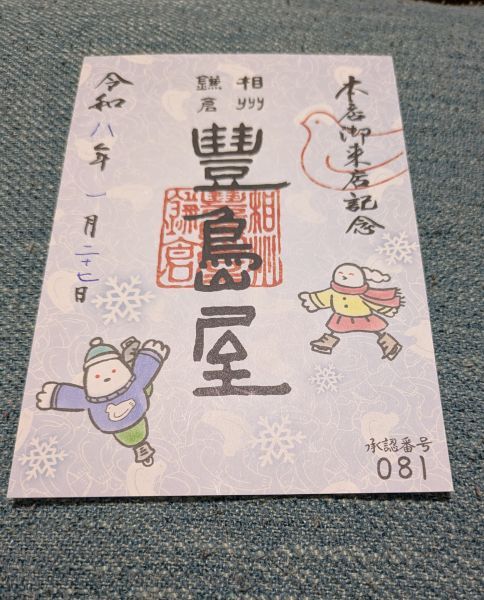 本店御来店記念
相州
鎌倉
豐島屋
相州
豐島屋
鎌倉
令和八年一月二十七日
承認番号
081